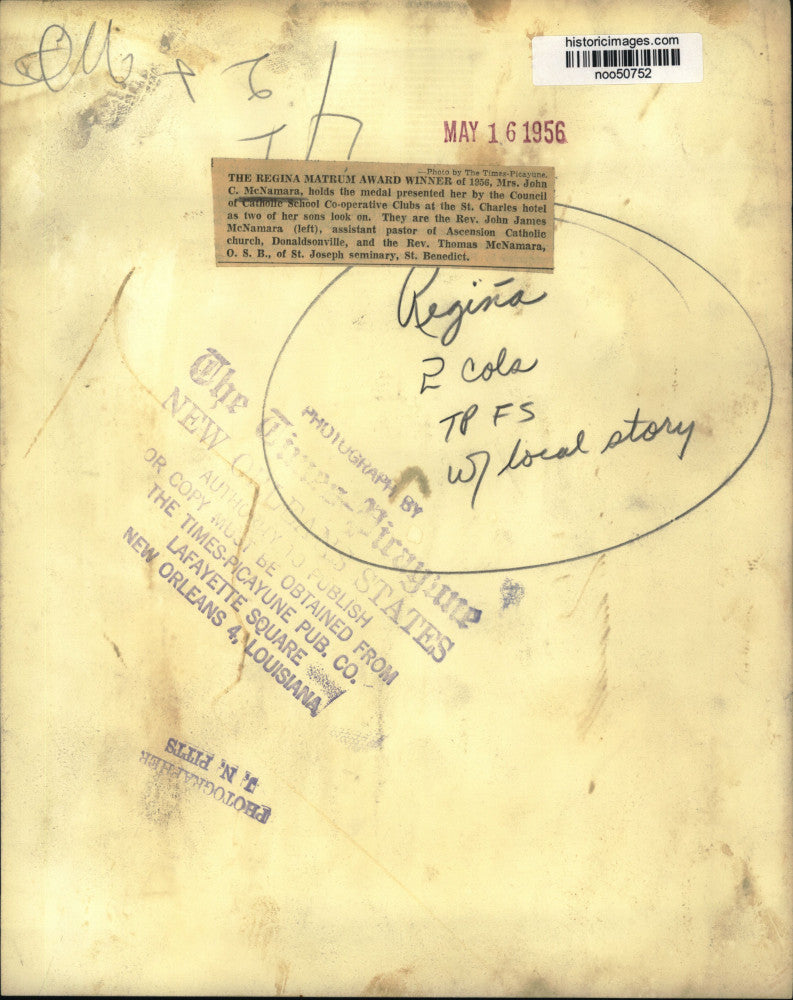 historicimages.com
noo50752
MAY 16 1956
—Photo by The Times-Picayune.
THE REGINA MATRUM AWARD WINNER of 1956, Mrs. John
C. McNamara, holds the medal presented her by the Council
of Catholic School Co-operative Clubs at the St. Charles hotel
as two of her sons look on. They are the Rev. John James
McNamara (left), assistant pastor of Ascension Catholic
church, Donaldsonville, and the Rev. Thomas McNamara,
O. S. B., of St. Joseph seminary, St. Benedict.
Regina
2 cols
TP FS
w/ local story
PHOTOGRAPH BY
The Times-Picayune
NEW ORLEANS STATES
AUTHORITY TO PUBLISH
OR COPY MUST BE OBTAINED FROM
THE TIMES-PICAYUNE PUB. CO.
LAFAYETTE SQUARE
NEW ORLEANS 4, LOUISIANA
J. N. PITTS
PHOTOGRAPHER